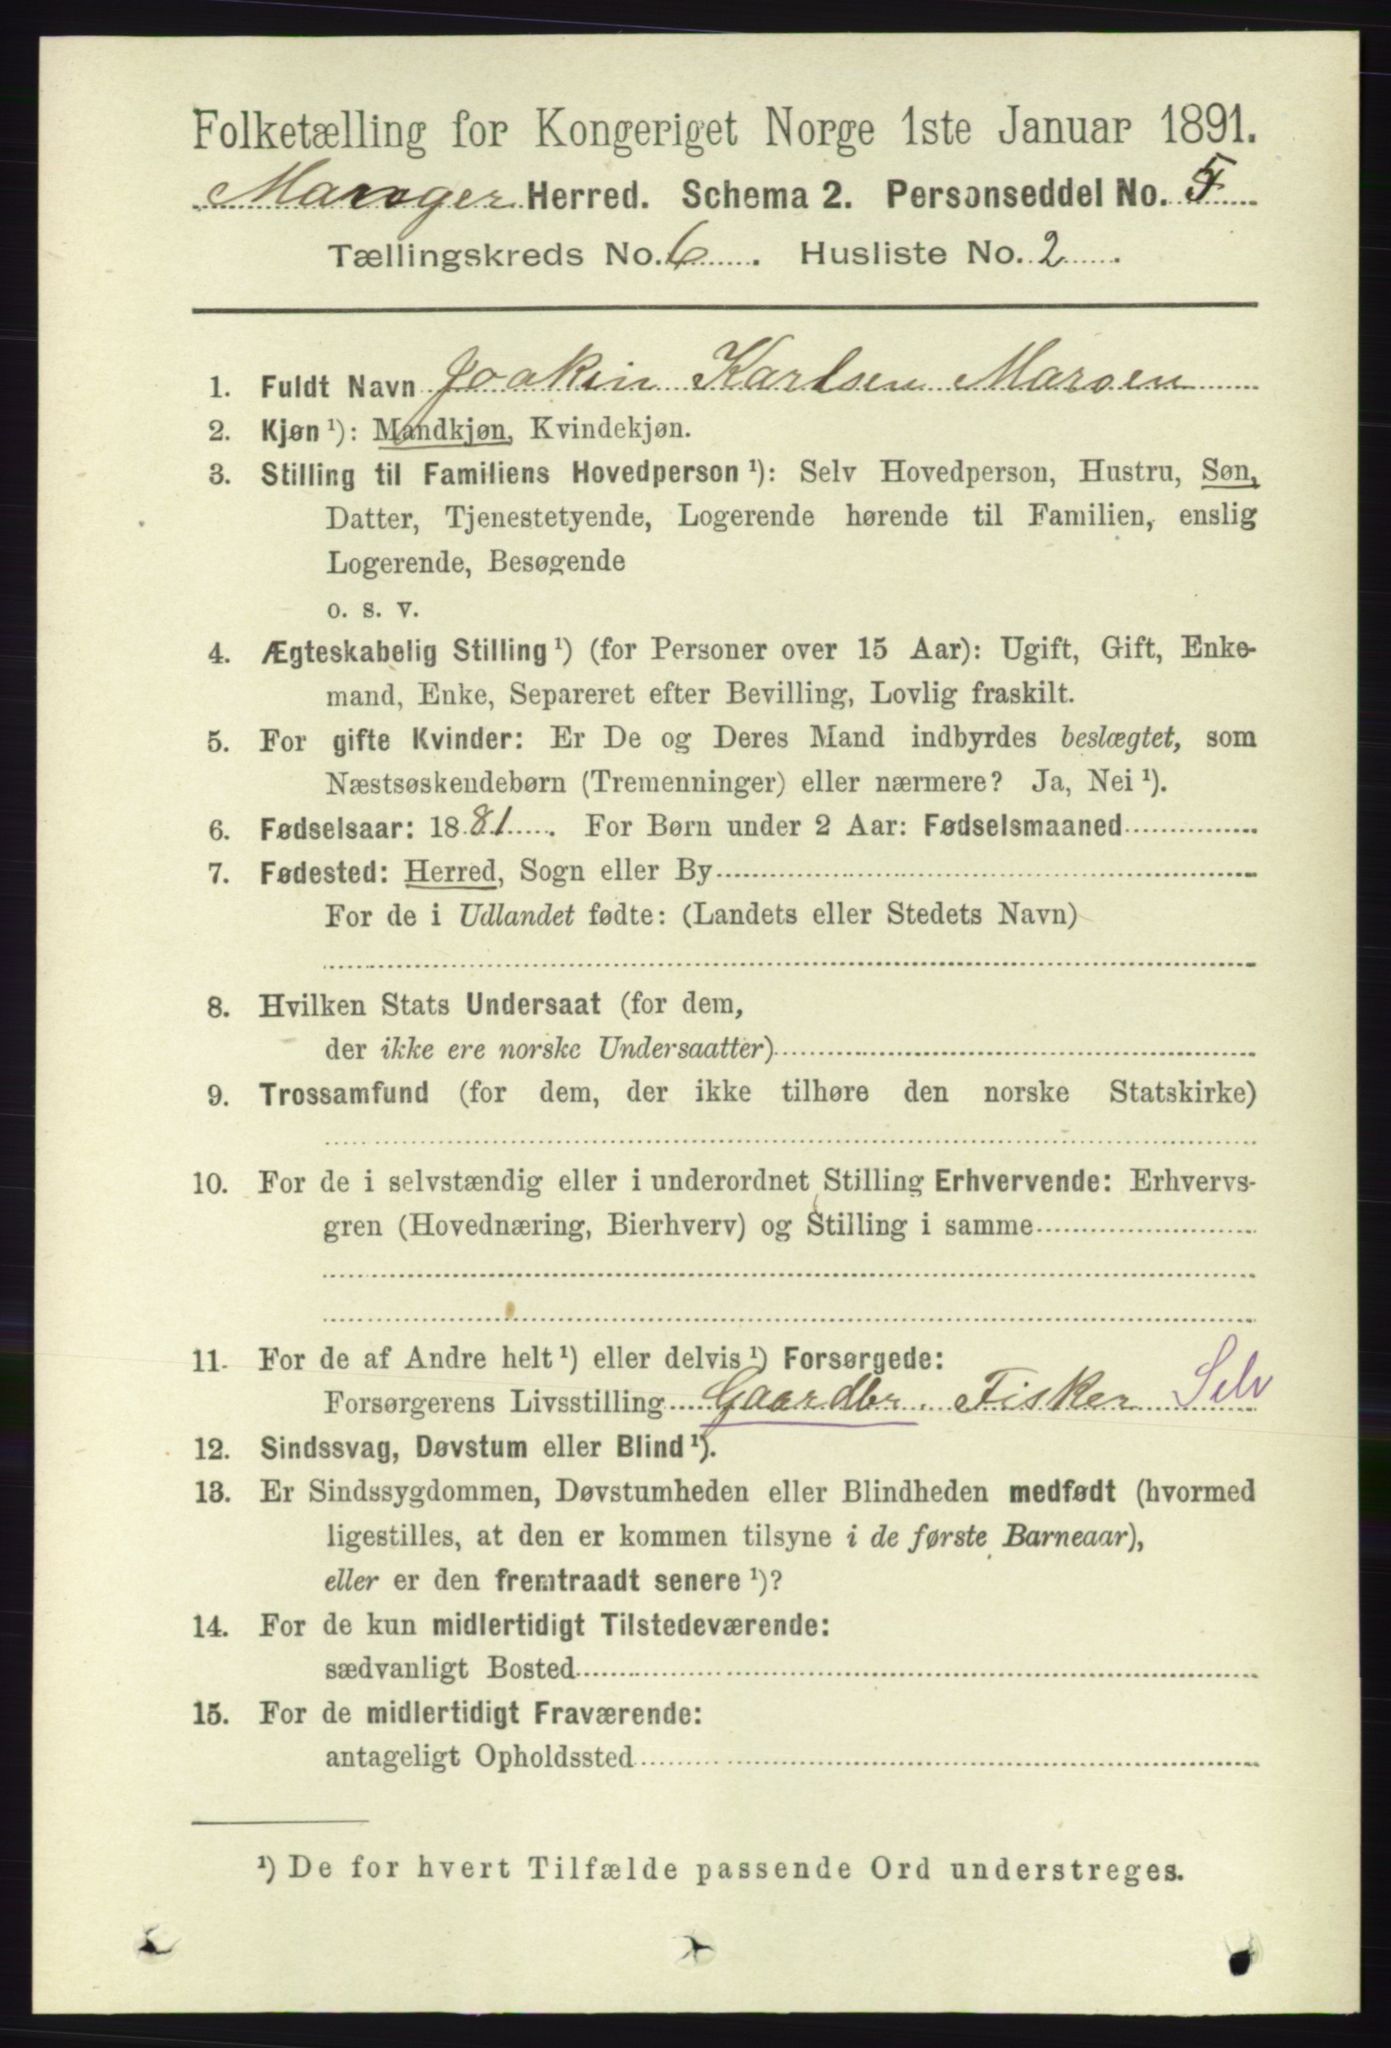 Folketælling for Kongeriget Norge 1ste Januar 1891.
Manger Herred. Schema 2. Personseddel No. 5
Tællingskreds No. 6. Husliste No. 2.
1. Fuldt Navn Joakin Karlsen Maroen
2. Kjøn ¹): Mandkjøn, Kvindekjøn.
3. Stilling til Familiens Hovedperson ¹): Selv Hovedperson, Hustru, Søn,
Datter, Tjenestetyende, Logerende hørende til Familien, enslig
Logerende, Besøgende
o. s. v.
4. Ægteskabelig Stilling ¹) (for Personer over 15 Aar): Ugift, Gift, Enke-
mand, Enke, Separeret efter Bevilling, Lovlig fraskilt.
5. For gifte Kvinder: Er De og Deres Mand indbyrdes beslægtet, som
Næstsøskendebørn (Tremenninger) eller nærmere? Ja, Nei ¹).
6. Fødselsaar: 1881. For Børn under 2 Aar: Fødselsmaaned
7. Fødested: Herred, Sogn eller By
For de i Udlandet fødte: (Landets eller Stedets Navn)
8. Hvilken Stats Undersaat (for dem,
der ikke ere norske Undersaatter)
9. Trossamfund (for dem, der ikke tilhøre den norske Statskirke)
10. For de i selvstændig eller i underordnet Stilling Erhvervende: Erhvervs-
gren (Hovednæring, Bierhverv) og Stilling i samme
11. For de af Andre helt ¹) eller delvis ¹) Forsørgede:
Forsørgerens Livsstilling Gaardbr. Fisker Selv
12. Sindssvag, Døvstum eller Blind ¹).
13. Er Sindssygdommen, Døvstumheden eller Blindheden medfødt (hvormed
ligestilles, at den er kommen tilsyne i de første Barneaar),
eller er den fremtraadt senere ¹)?
14. For de kun midlertidigt Tilstedeværende:
sædvanligt Bosted
15. For de midlertidigt Fraværende:
antageligt Opholdssted
¹) De for hvert Tilfælde passende Ord understreges.